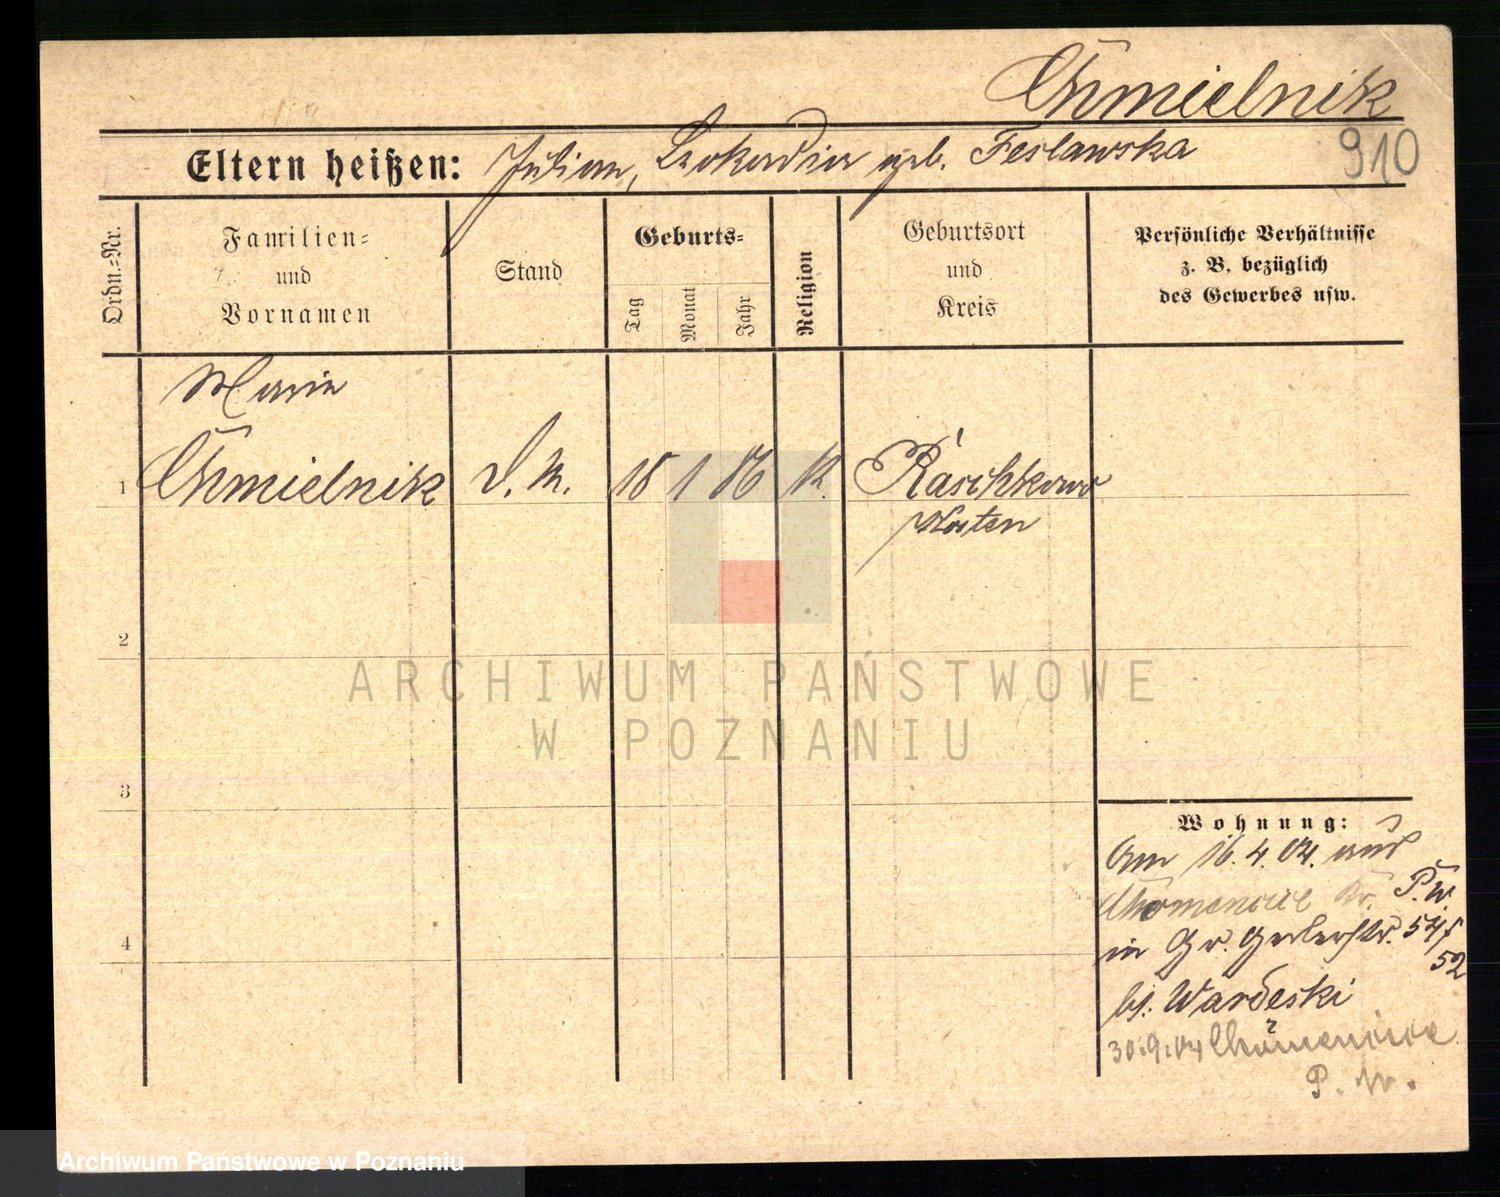 Chmielnik
Eltern heißen: Julian, Leokadia geb. Feslawska
910
Ordn.-Nr.
Familien-
und
Vornamen
Stand
Geburts-
Tag
Monat
Jahr
Religion
Geburtsort
und
Kreis
Persönliche Verhältnisse
z. B. bezüglich
des Gewerbes usw.
Marie
1 Chmielnik D. M. 18 1 86 K. Raschkowo
Kosten
2
3
4
Wohnung:
Am 16.4.04. aus
Chomencice Kr. P. W.
in Gr. Gerberstr.
52
bei Wardeski
30.9.04 Chomencice
P. W.
ARCHIWUM PAŃSTWOWE
W POZNANIU
Archiwum Państwowe w Poznaniu